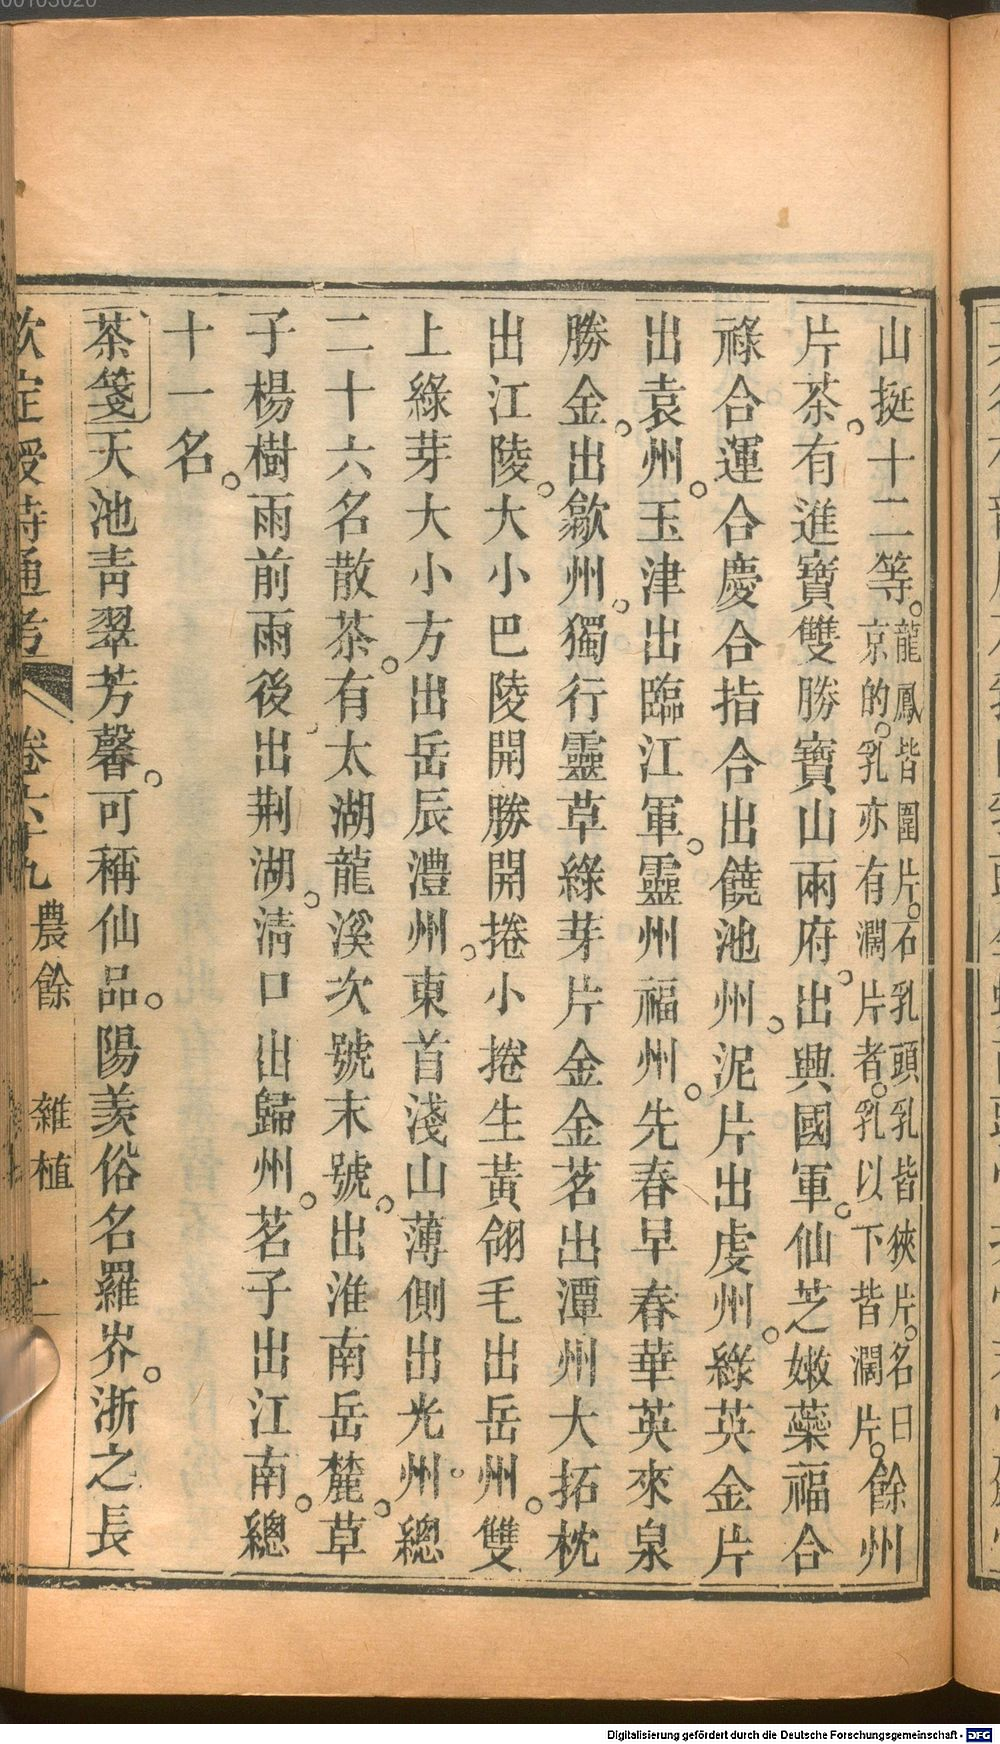 山挺十二等。龍鳳皆圍片。石乳頭乳皆狹片。名曰京的。乳亦有濶片者。乳以下皆濶片。餘州
片茶。有進寶雙勝寶山兩府。出興國軍。仙芝嫩蘂福合
祿合運合慶合指合出饒池州。泥片出虔州。綠英金片
出袁州。玉津出臨江軍。靈州福州。先春早春華英來泉
勝金。出歙州。獨行靈草綠芽片金金茗出潭州大拓枕
出江陵。大小巴陵開勝開捲小捲生黃翎毛出岳州。雙
上綠芽大小方出岳辰澧州。東首淺山薄側出光州。總
二十六名散茶。有太湖龍溪次號末號。出淮南岳麓。草
子楊樹雨前雨後。出荆湖。清口出歸州。茗子出江南。總
十一名。
茶箋天池靑翠芳馨。可稱仙品。陽羡俗名羅岕。浙之長
欽定授時通考 卷六十九 農餘 雜植
Digitalisierung gefördert durch die Deutsche Forschungsgemeinschaft - DFG